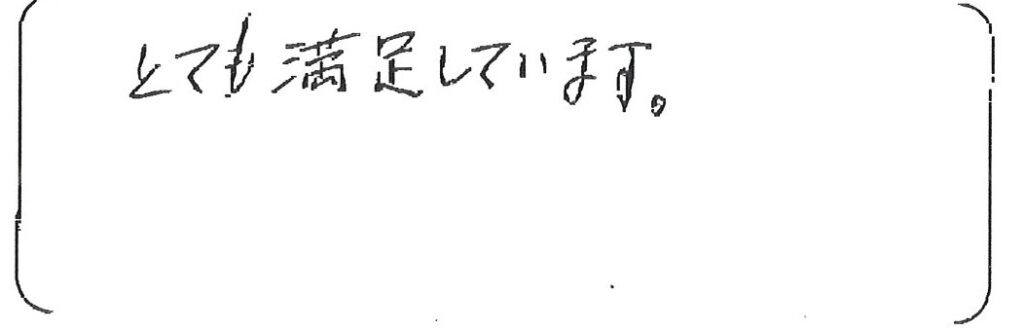 とても満足しています。